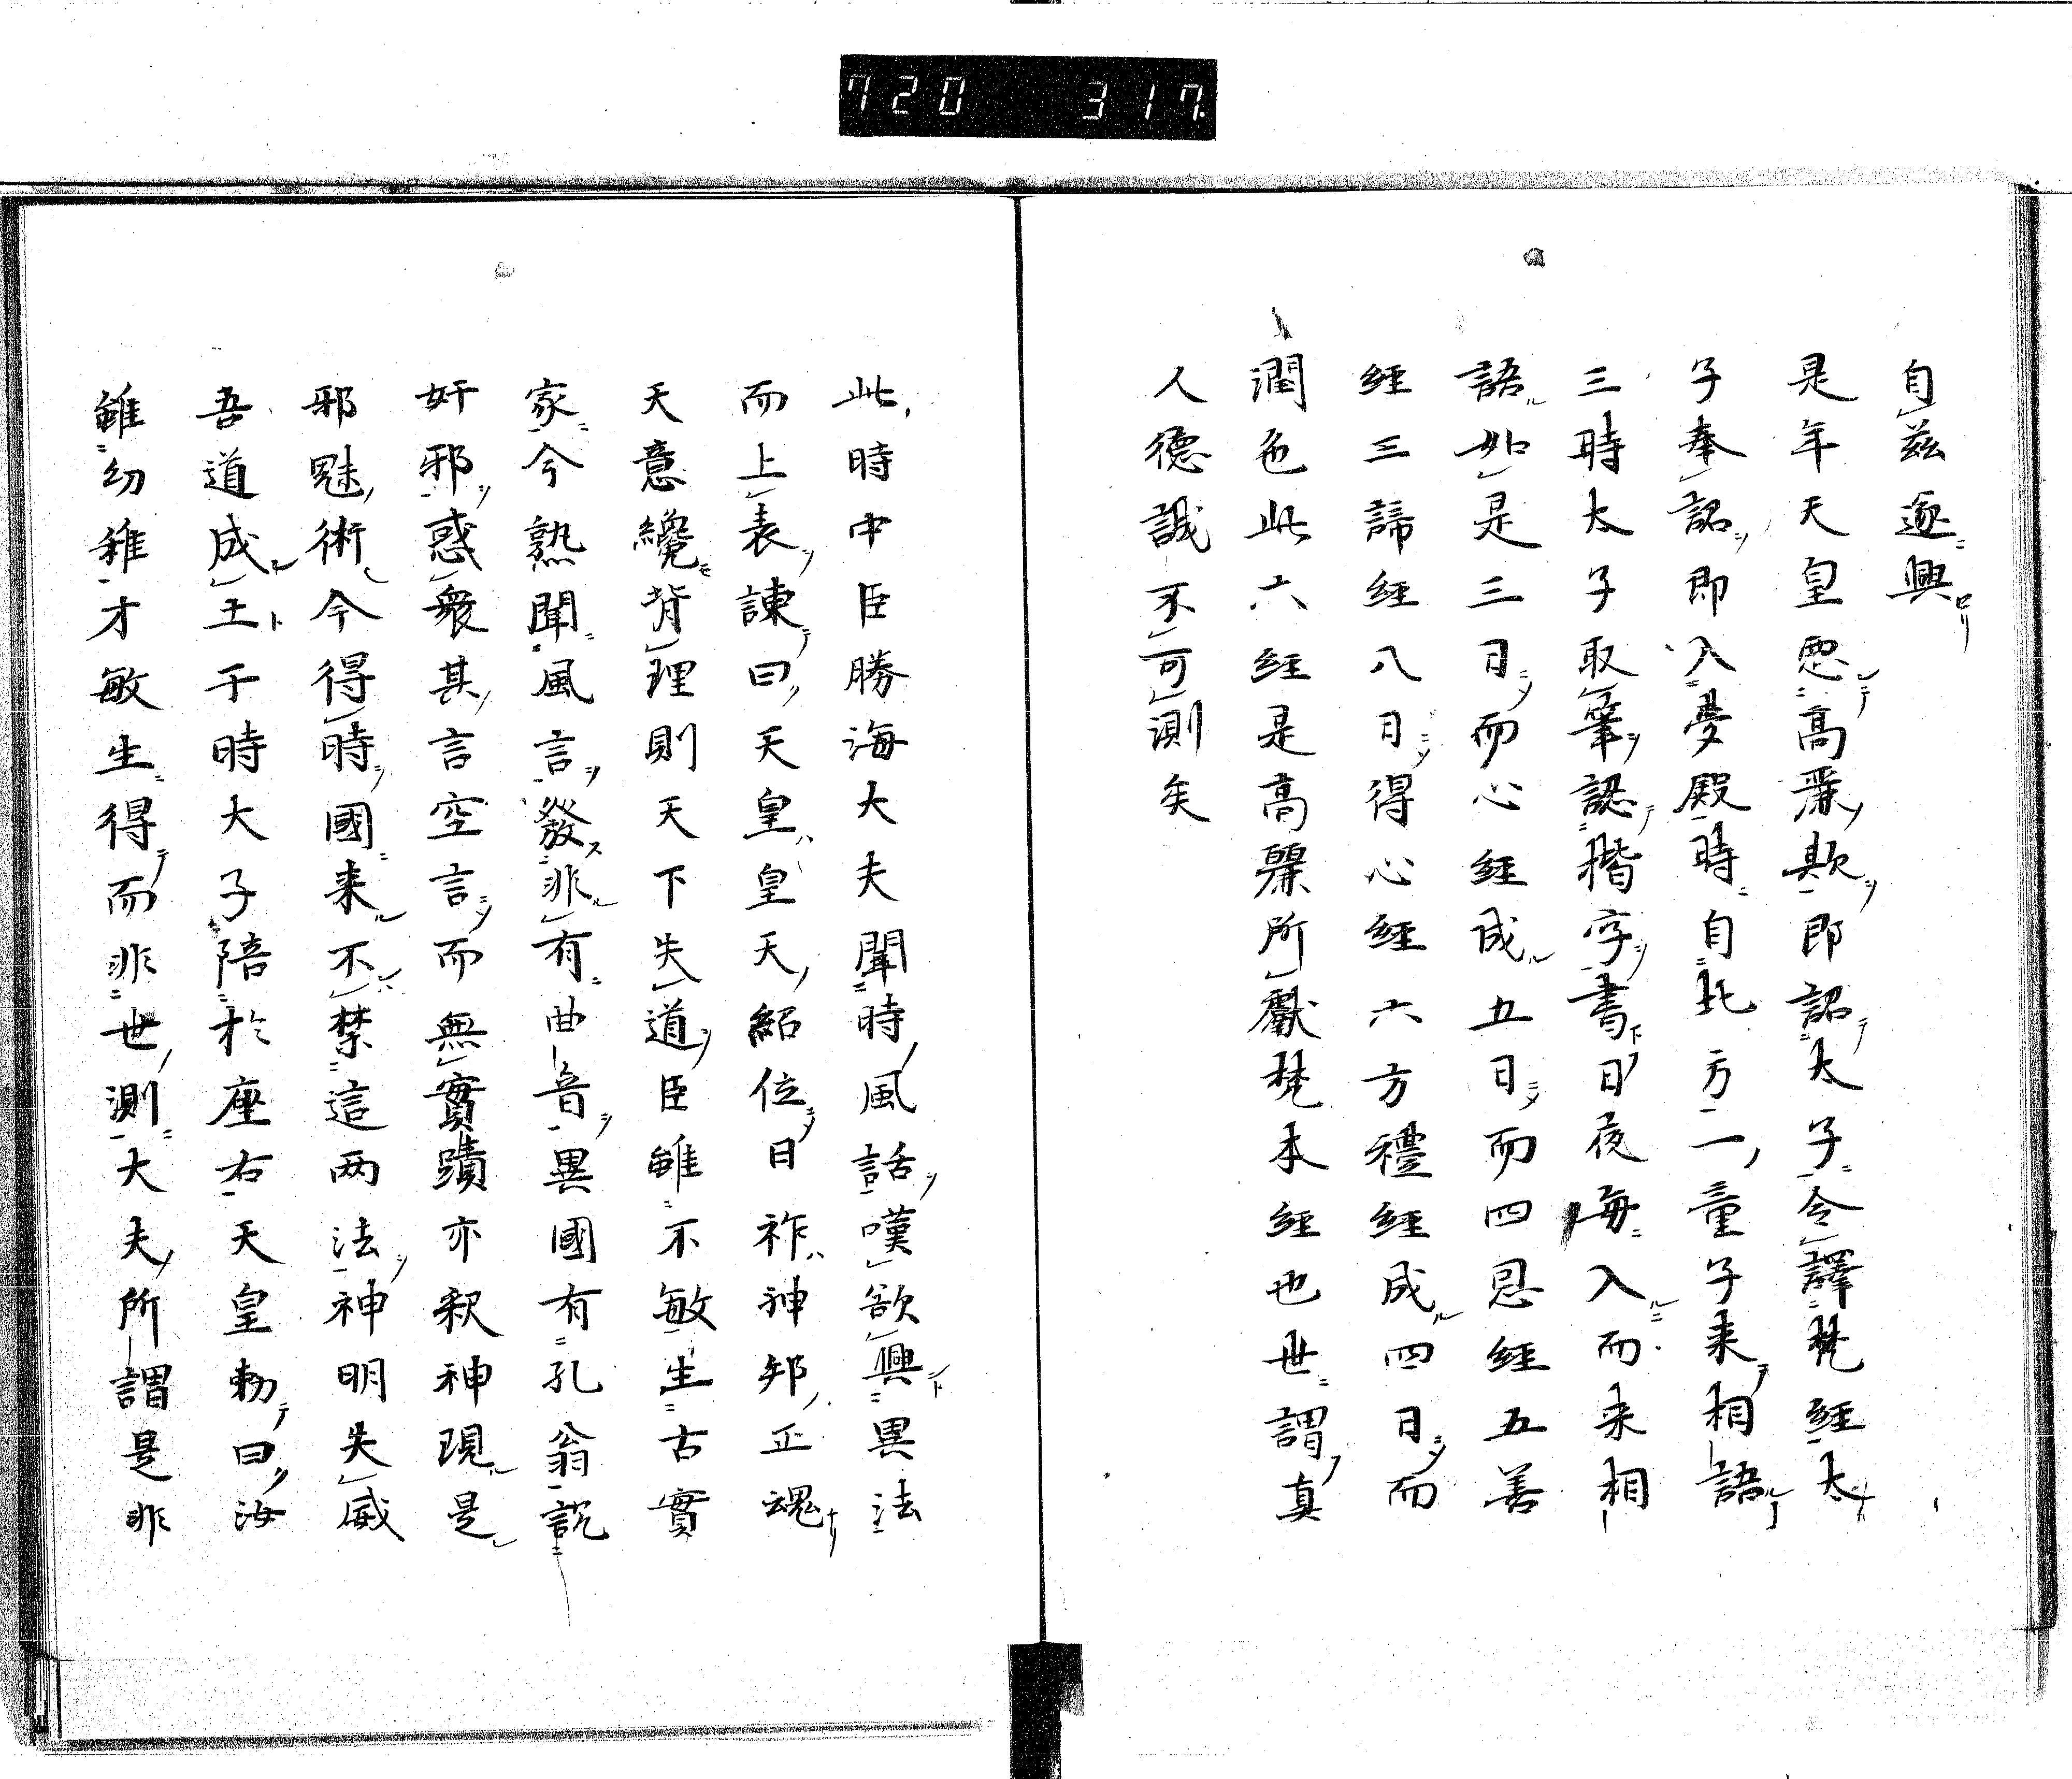 720 317
自茲逐興
是年天皇愍高麗欺即詔太子令譯梵經太
子奉詔即入夢殿時自北方一童子来相語
三時太子取筆認楷字書日日夜每入而来相
語如是三日而心經成五日而四恩經五善
經三諦經八日得心經六方禮經成四日而
潤色此六經是高麗所獻梵本經也世謂真
人德誠不可測矣
此時中臣勝海大夫聞時風話嘆欲興異法
而上表諫曰天皇皇天紹位日祚神知正魂
天意纔背理則天下失道臣雖不敏生古實
家今熟聞風言發非有曲音異國有孔翁說
奸邪惑衆其言空言而無實蹟亦釈神現是
邪魅術今得時國来不禁這両法神明失威
吾道成土于時大子陪於座右天皇勅曰汝
雖幼稚才敏生得而非世測大夫所謂是非